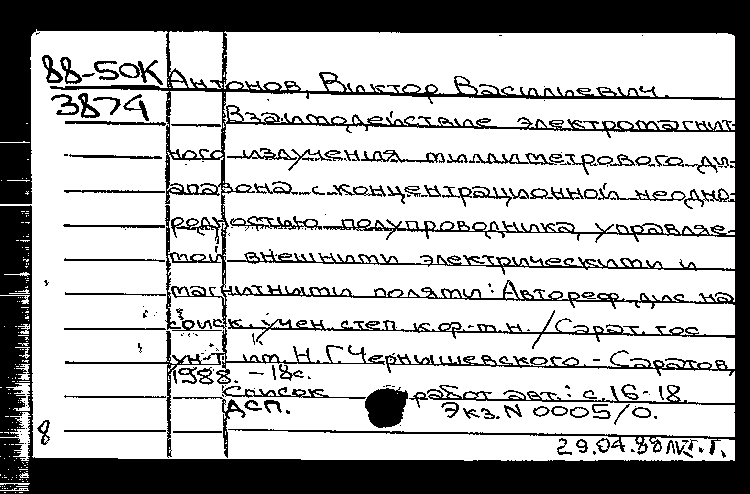 88-50К Антонов, Виктор Васильевич.
3874 Взаимодействие электромагнит-
ного излучения миллиметрового ди-
апазона с концентрационной неодно-
родностью полупроводника, управляе-
мой внешними электрическими и
магнитными полями: Автореф. дис. на
соиск. учен. степ к.ф-м.н. / Сарат. гос
ун-т им. Н.Г. Чернышевского. - Саратов,
1988. - 18с.
Список работ авт.: с. 16-18.
ДСП. Экз. N 0005/0.
8
29.04.88